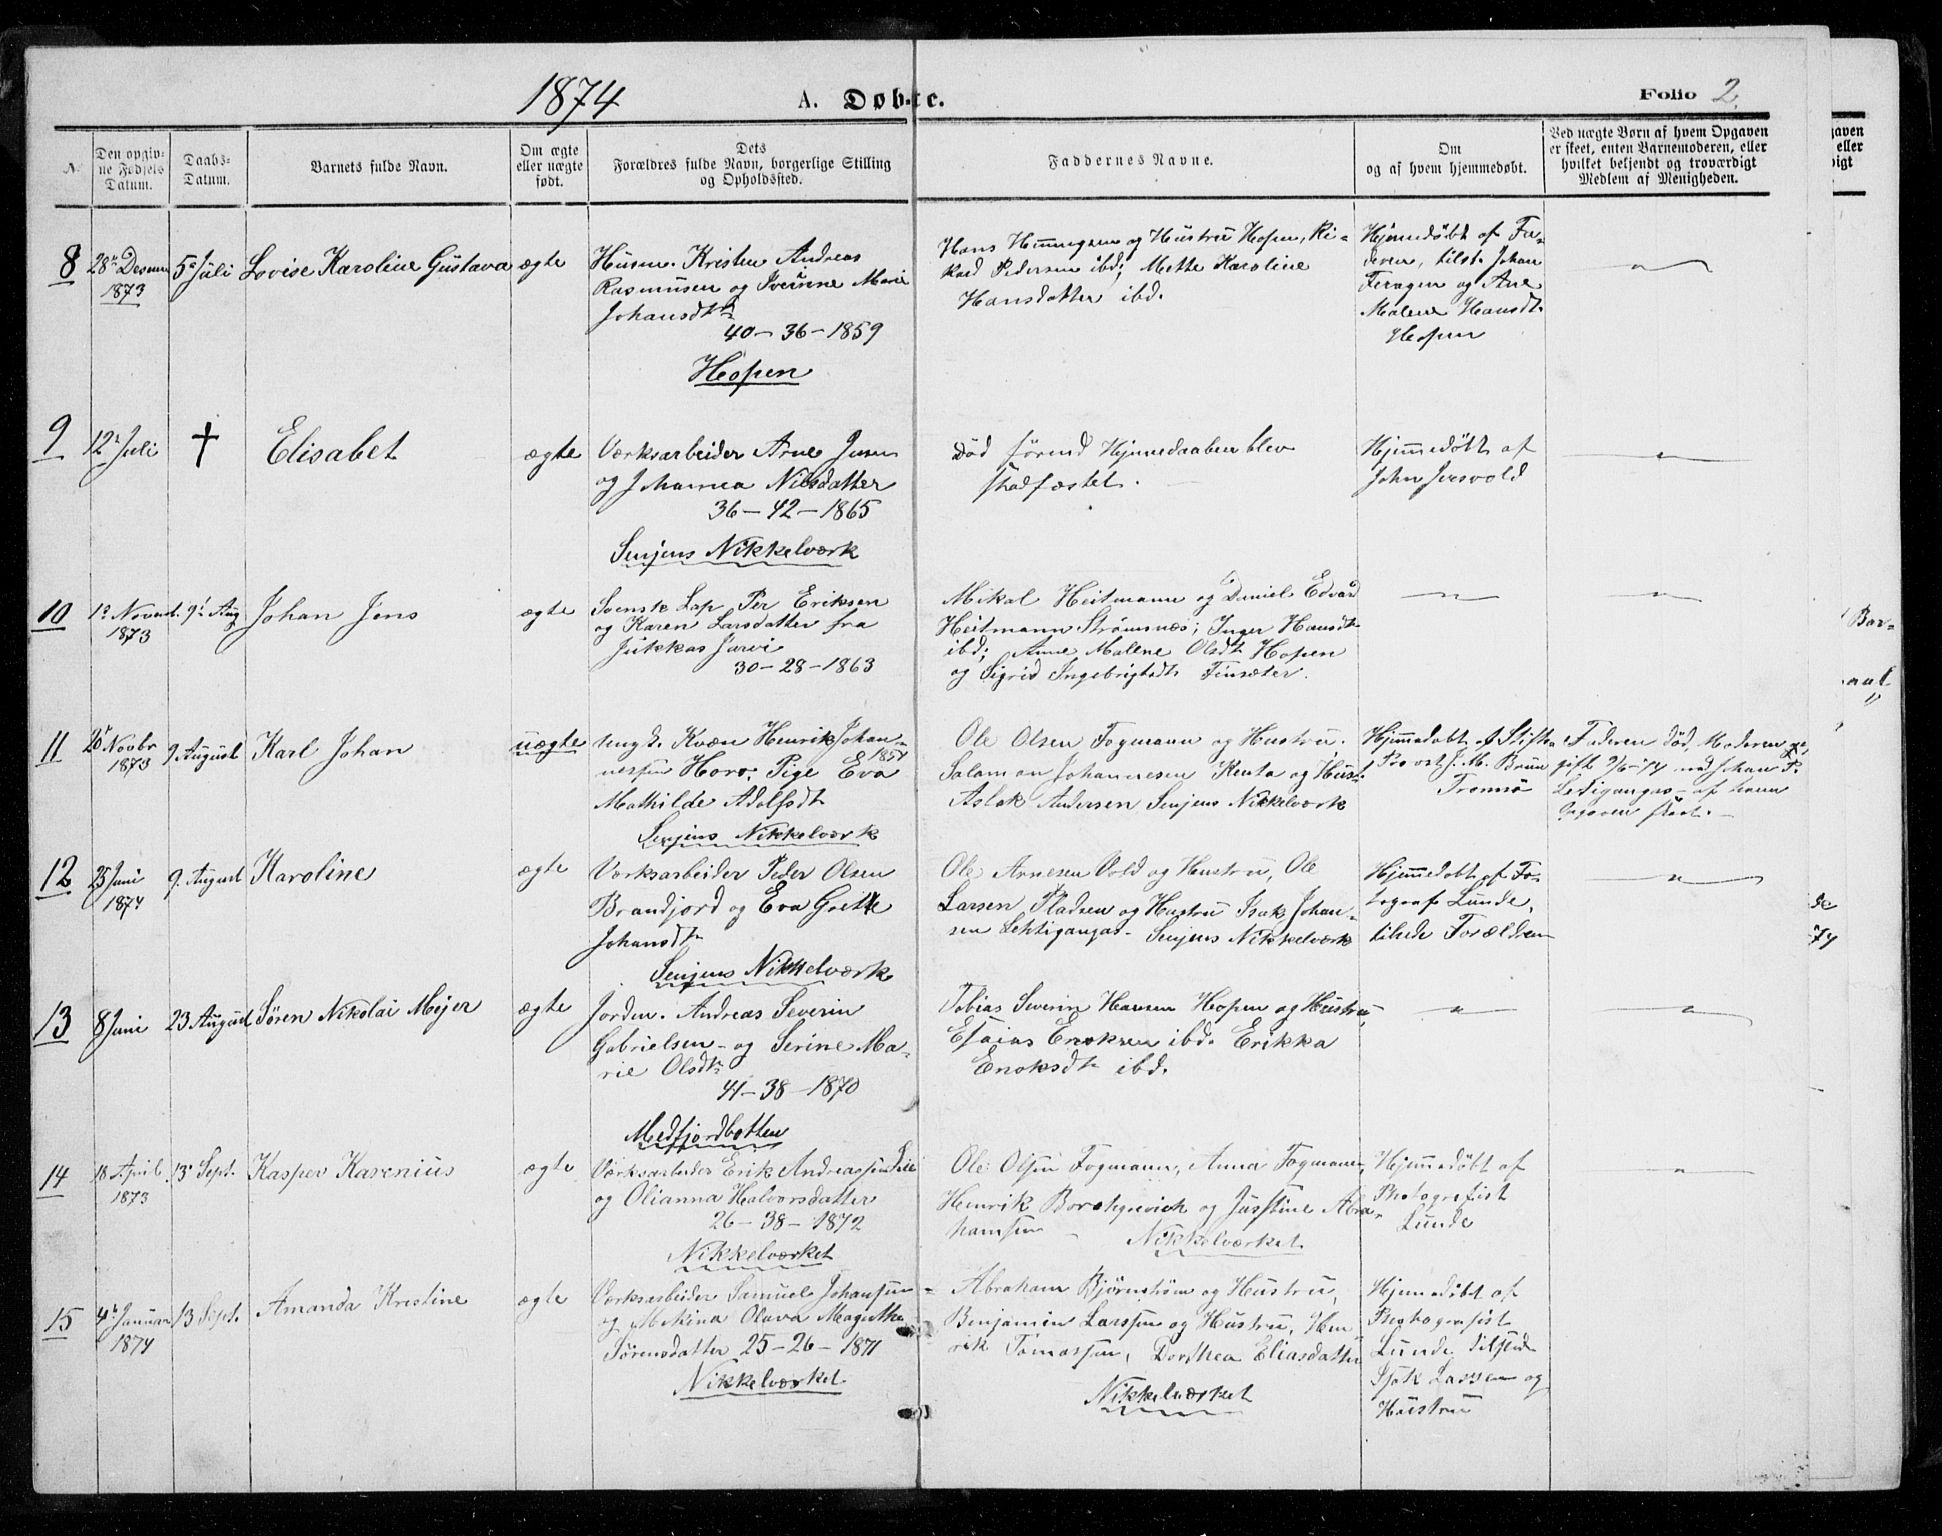 1874
A. Døbte.
Folio 2.
N.
Den opgiv-
ne Fødsels
Datum.
Daabs-
Datum.
Barnets fulde Navn.
Om ægte
eller uægte
født.
Dets
Forældres fulde Navn, borgerlige Stilling
og Opholdssted.
Faddernes Navne.
Om
og af hvem hjemmedøbt.
Ved uægte Børn af hvem Opgaven
er skeet, enten Barnemoderen, eller
hvilket bekjendt og troværdigt
Medlem af Menigheden.
8
28 Desem
1873
5 Juli
Lovise Karoline Gustava
ægte
Husm. Kristen Andreas
Rasmussen og Iverine Marie
Johansdtr
40-36-1859
Hopen
Hans Henningsen og Hustru Hopen, Ri-
kard Pedersen ibd; Mette Karoline
Hansdatter ibd.
Hjemmedøbt af Fa-
deren, tilst. Johan
Feragen og Ane
Malene Hansdtr
Hopen
9
12 Juli
†
Elisabet
ægte
Værksarbeider Arne Jensen
og Johanna Nilsdatter
36-42-1865
Senjens Nikkelværk
Død førend Hjemmedaaben blev
stadfæstet.
Hjemmedøbt af
John
10
1 Novemb.
1873
9 Aug
Johan Jens
ægte
Svensk Lap Per Eriksen
og Karen Larsdatter fra
Jukkas Jarvi
30-28-1863
Mikal Heitmann og Daniel Edvard
Heitmann Strømsnæs; Inger Hansdtr
ibd; Anne Malene Olsdt Hopen
og Sigrid Ingebrigtsdtr Finsæter.
11
20 Novbr
1873
9 August
Karl Johan
uægte
Ungk. Kvæn Henrik Johan-
nessen Horo; Pige Eva 1851
Mathilde Adolfsdt
Senjens Nikkelværk
Ole Olsen Fogmann og Hustru.
Salamon Johannesen Kenta og Hust.
Aslak Andersen Senjens Nikkelværk
Hjemmedøbt af Stifts
Provst J. M. Brun
Tromsø
Faderen død, Moderen
gift 9/6-74 med Johan P.
Letigangas - af ham
Opgaven skeet.
12
25 Juni
1874
9. August
Karoline
ægte
Værksarbeider Peder Olsen
Brandfjord og Eva Grethe
Johansdtr
Senjens Nikkelværk
Ole Arnesen Vold og Hustru, Ole
Larsen Pladsen og Hustru Isak Johan-
sen Lehtigangas- Senjens Nikkelværk
Hjemmedøbt af Fo-
tograf Lunde,
tilstede Forældrene
13
8 Juni
23 August
Søren Nikolai Mejer
ægte
Jordm. Andreas Severin
Gabrielsen og Serine Ma-
rie Olsdtr
41-38-1870
Medfjordbotten
Tobias Severin Hansen Hopen og Hustru,
Esaias Enoksen ibd. Erikka
Enoksdtr ibd.
14
18 April
1873
13 Sept.
Kasper Karenius
ægte
Værksarbeider Erik Andreassen
og Olianna Halvorsdatter
26-38-1872
Nikkelværket
Ole Olsen Fogmann, Anna Fogmann,
Henrik Borchgrevink og Justine Abra-
hamsen
Nikkelværket
Hjemmedøbt af
Photografist
Lunde
15
4 Januar
1874
13 Sept.
Amanda Kristine
ægte
Værksarbeider Samuel Johansen
og Olava Magrethe
Sørensdatter 25-26-1871
Nikkelværket
Abraham Bjørnstrøm og Hustru,
Benjamin Larsen og Hustru, Hen
rik Tomassen, Dorthea Eliasdatter
Nikkelværket
Hjemmedøbt af
Photografist
Lunde tilstede
Lassen og
Hustru